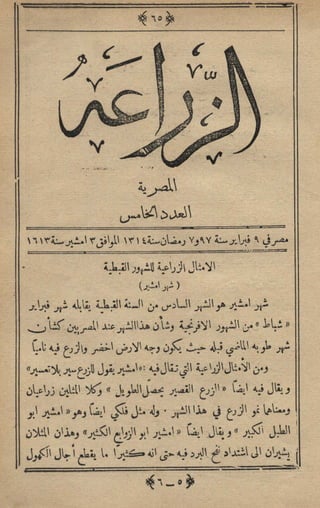 ﴿ ٦٥ ﴾
الزراعة
المصرية
العدد الخامس
مصر في ٩ فبراير سنة ٩٧ و٧ رمضان سنة ١٣١٤ الموافق ٣ امشير سنة ١٦١٣
الامثال الزراعية للشهور القبطية
( شهر امشير )
شهر امشير هو الشهر السادس من السنة القبطية يقابله شهر فبراير
« شباط » من الشهور الافرنجية وشأن هذا الشهر عند المصريين كشأن
شهر طوبه الماضي قبله حيث يكون وجه الارض اخضر والزرع فيه ناميًا
ومن الأمثال الزراعية التي تقال فيه : « امشير يقول للزرع سير بلا تعسير »
ويقال فيه ايضًا « الزرع القصير يحصّل الطويل » وكلا المثلين زراعيان
ومعناهما نمو الزرع في هذا الشهر ٠ وله مثل فلكي ايضًا وهو « امشير ابو
الطبل الكبير » ويقال ايضًا « امشير ابو الزوابع الكثير » وهذان المثلان
يشيران الى اشتداد نفح البرد فيه حتى انه كثيرًا ما يقطع آجال الكهول
﴿ ٥ــ٦ ﴾